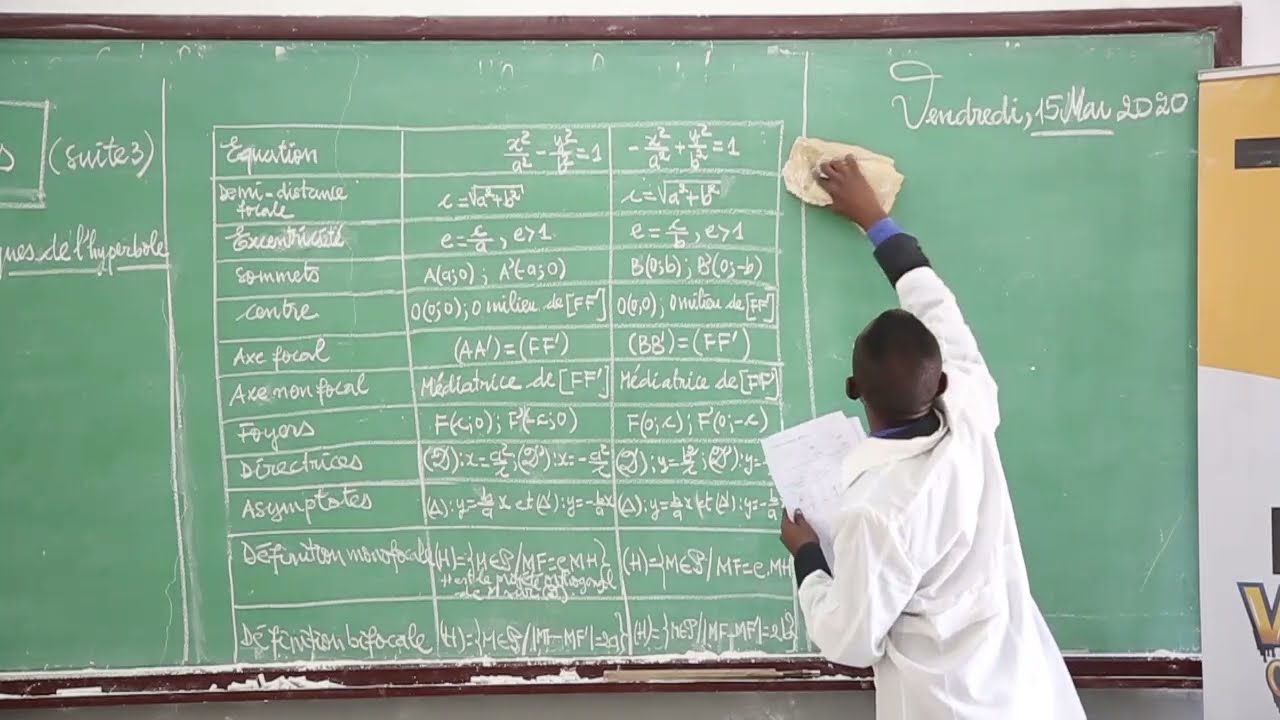 Vendredi, 15 Mai 2020
S (suite 3)
ques de l'hyperbole
Equation x²/a² - y²/b² = 1 -x²/a² + y²/b² = 1
Demi-distance focale c = √a²+b² c = √a²+b²
Excentricité e = c/a, e>1 e = c/b, e>1
Sommets A(a;0); A'(-a;0) B(0;b); B'(0;-b)
centre O(0;0); O milieu de [FF'] O(0,0); O milieu de [FF']
Axe focal (AA') = (FF') (BB') = (FF')
Axe non focal Médiatrice de [FF'] Médiatrice de [FF']
Foyers F(c;0); F'(-c;0) F(0;c); F'(0;-c)
Directrices (D): x = a²/c; (D'): x = -a²/c (D); y = b²/c; (D'): y = -
Asymptotes (Δ): y = b/a x et (Δ'): y = -b/a x (Δ): y = b/a x et (Δ'): y = -b/a x
Définition monofocale (H) = {M∈P/MF = e.MH} (H) = {M∈P/MF = e.MH
H est le projeté orthogonal
de M sur (D)
Définition bifocale (H) = {M∈P/|MF-MF'| = 2a} (H) = {M∈P/|MF-MF'| = 2b}